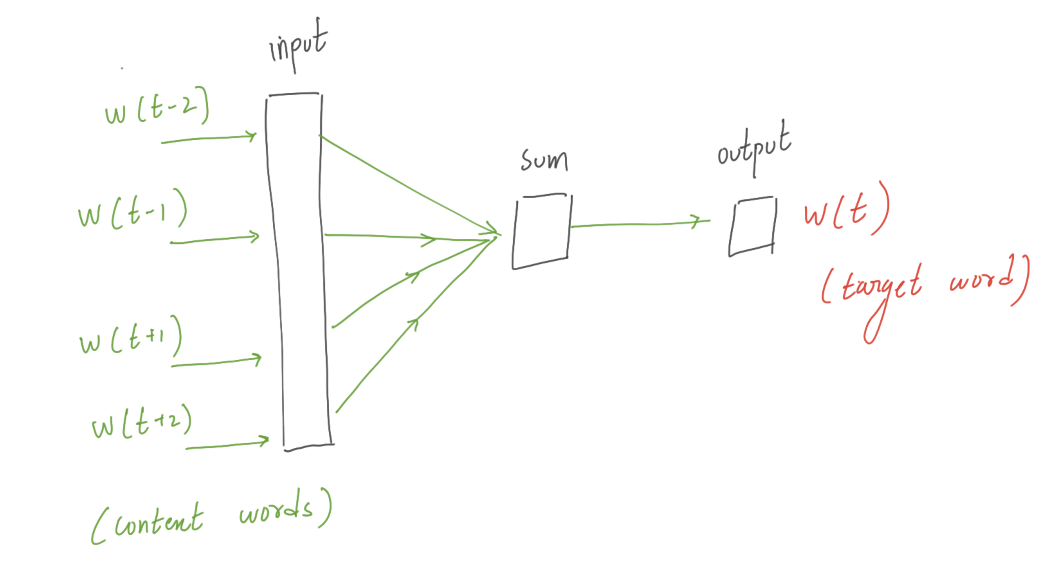 input
w(t-2)
w(t-1)
w(t+1)
w(t+2)
(content words)
sum
output
w(t)
(target word)